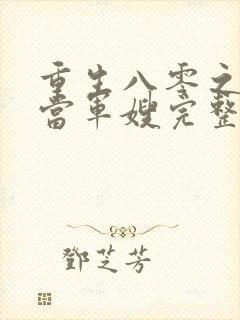 重生八零之
當軍嫂完整
鄧芝芳